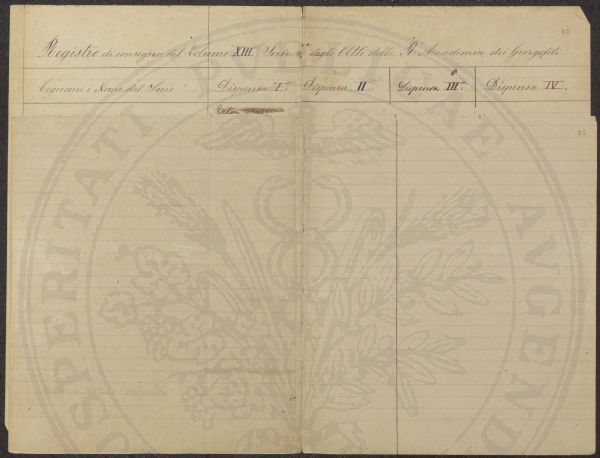 82
Registro di consegna del Volume XIII Serie degli Atti della R. Accademia dei Georgofili
Cognome e Nome del Socio Dispensa Iª Dispensa IIª Dispensa IIIª Dispensa IV.
82
PROSPERITATI PUBLICAE AVGENDAE